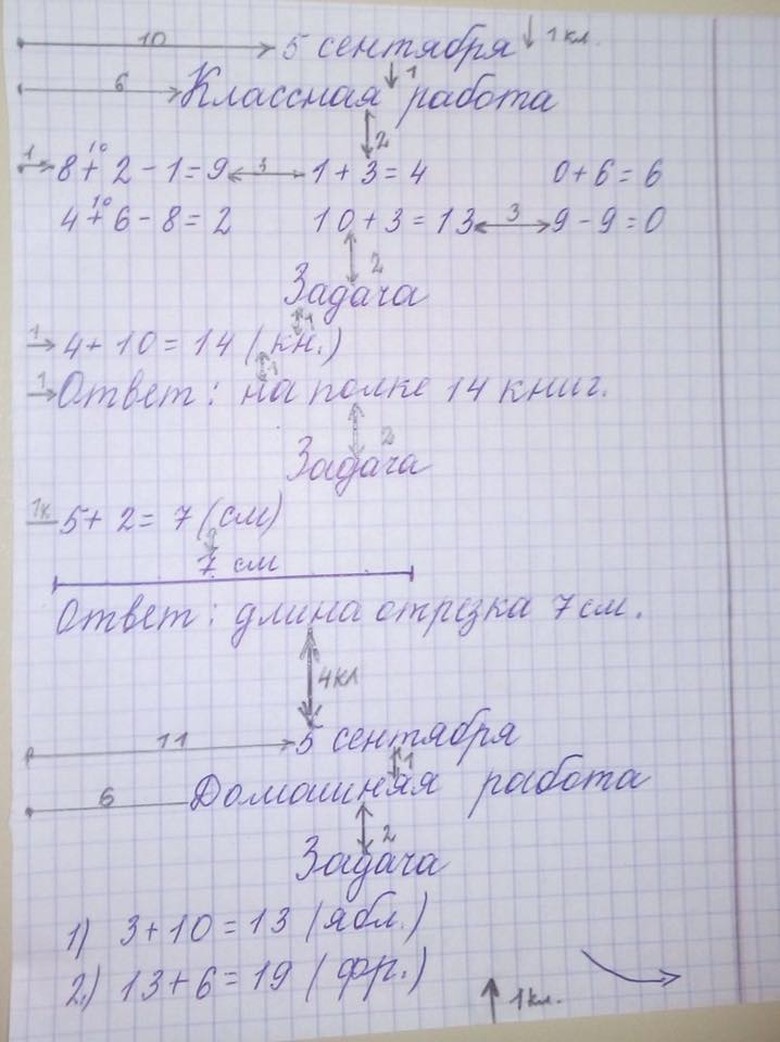 10 5 сентября 1 кл.
1
6 Классная работа
2
10
1 8 + 2 - 1 = 9 3 1 + 3 = 4 0 + 6 = 6
10
4 + 6 - 8 = 2 10 + 3 = 13 3 9 - 9 = 0
2
Задача
1
1 4 + 10 = 14 (кн.)
1
1 Ответ: на полке 14 книг.
2
Задача
1к 5 + 2 = 7 (см)
7 см
Ответ: длина отрезка 7 см.
4 кл
11 5 сентября
1
6 Домашняя работа
2
Задача
1) 3 + 10 = 13 (ябл.)
2.) 13 + 6 = 19 (фр.)
1 кл.